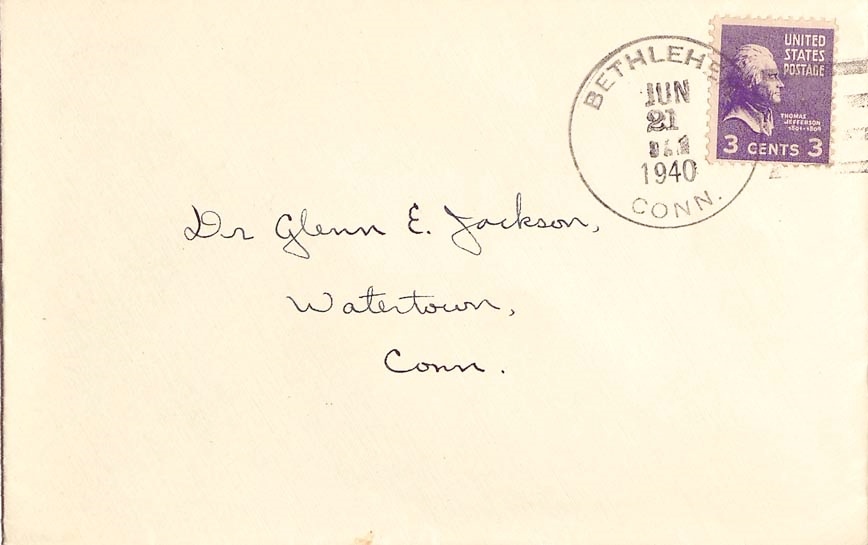 BETHLEHE
JUN
21
1940
CONN.
UNITED
STATES
POSTAGE
THOMAS
JEFFERSON
1801-1809
3 CENTS 3
Dr Glenn E. Jackson,
Watertown,
Conn.